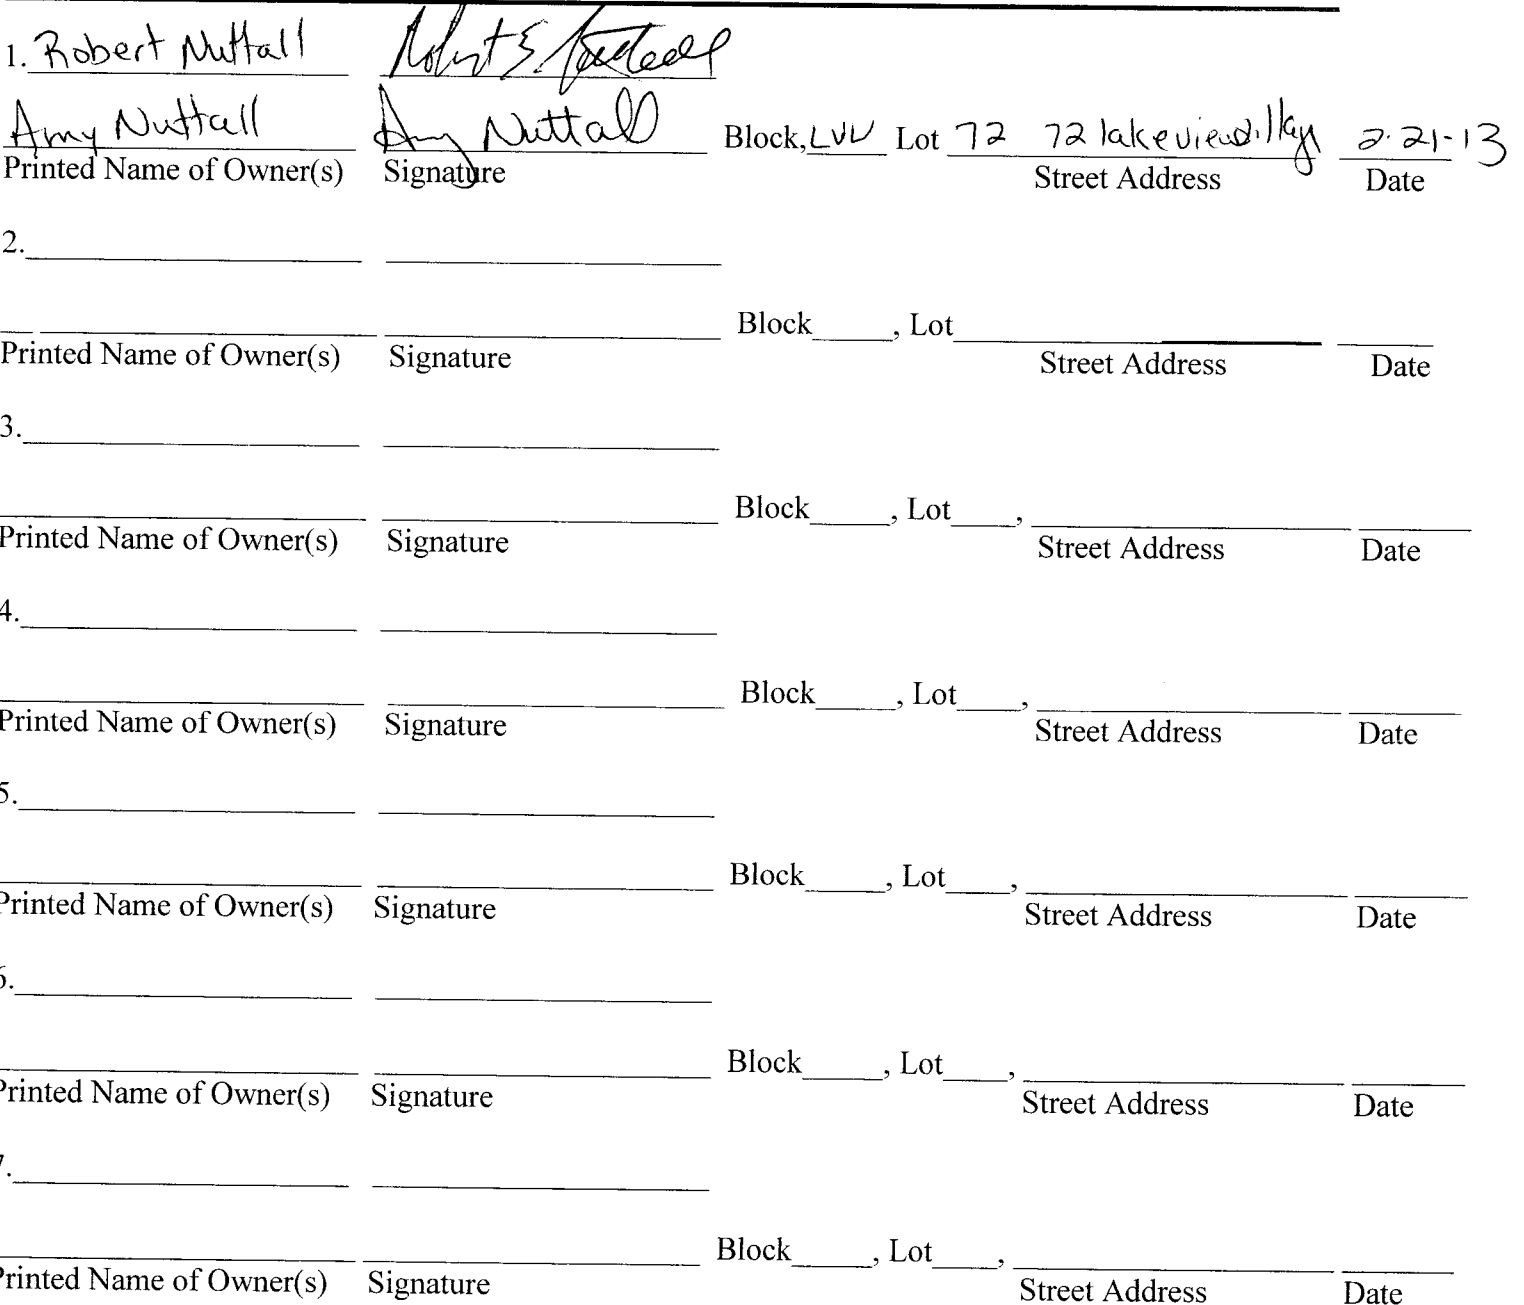 1. Robert Nuttall Robert S. Nuttall
Amy Nuttall Amy Nuttall Block, LVV Lot 72 72 lakeview village 2-21-13
Printed Name of Owner(s) Signature Street Address Date
2.
Block , Lot
Printed Name of Owner(s) Signature Street Address Date
3.
Block , Lot ,
Printed Name of Owner(s) Signature Street Address Date
4.
Block , Lot ,
Printed Name of Owner(s) Signature Street Address Date
5.
Block , Lot ,
Printed Name of Owner(s) Signature Street Address Date
6.
Block , Lot ,
Printed Name of Owner(s) Signature Street Address Date
7.
Block , Lot ,
Printed Name of Owner(s) Signature Street Address Date